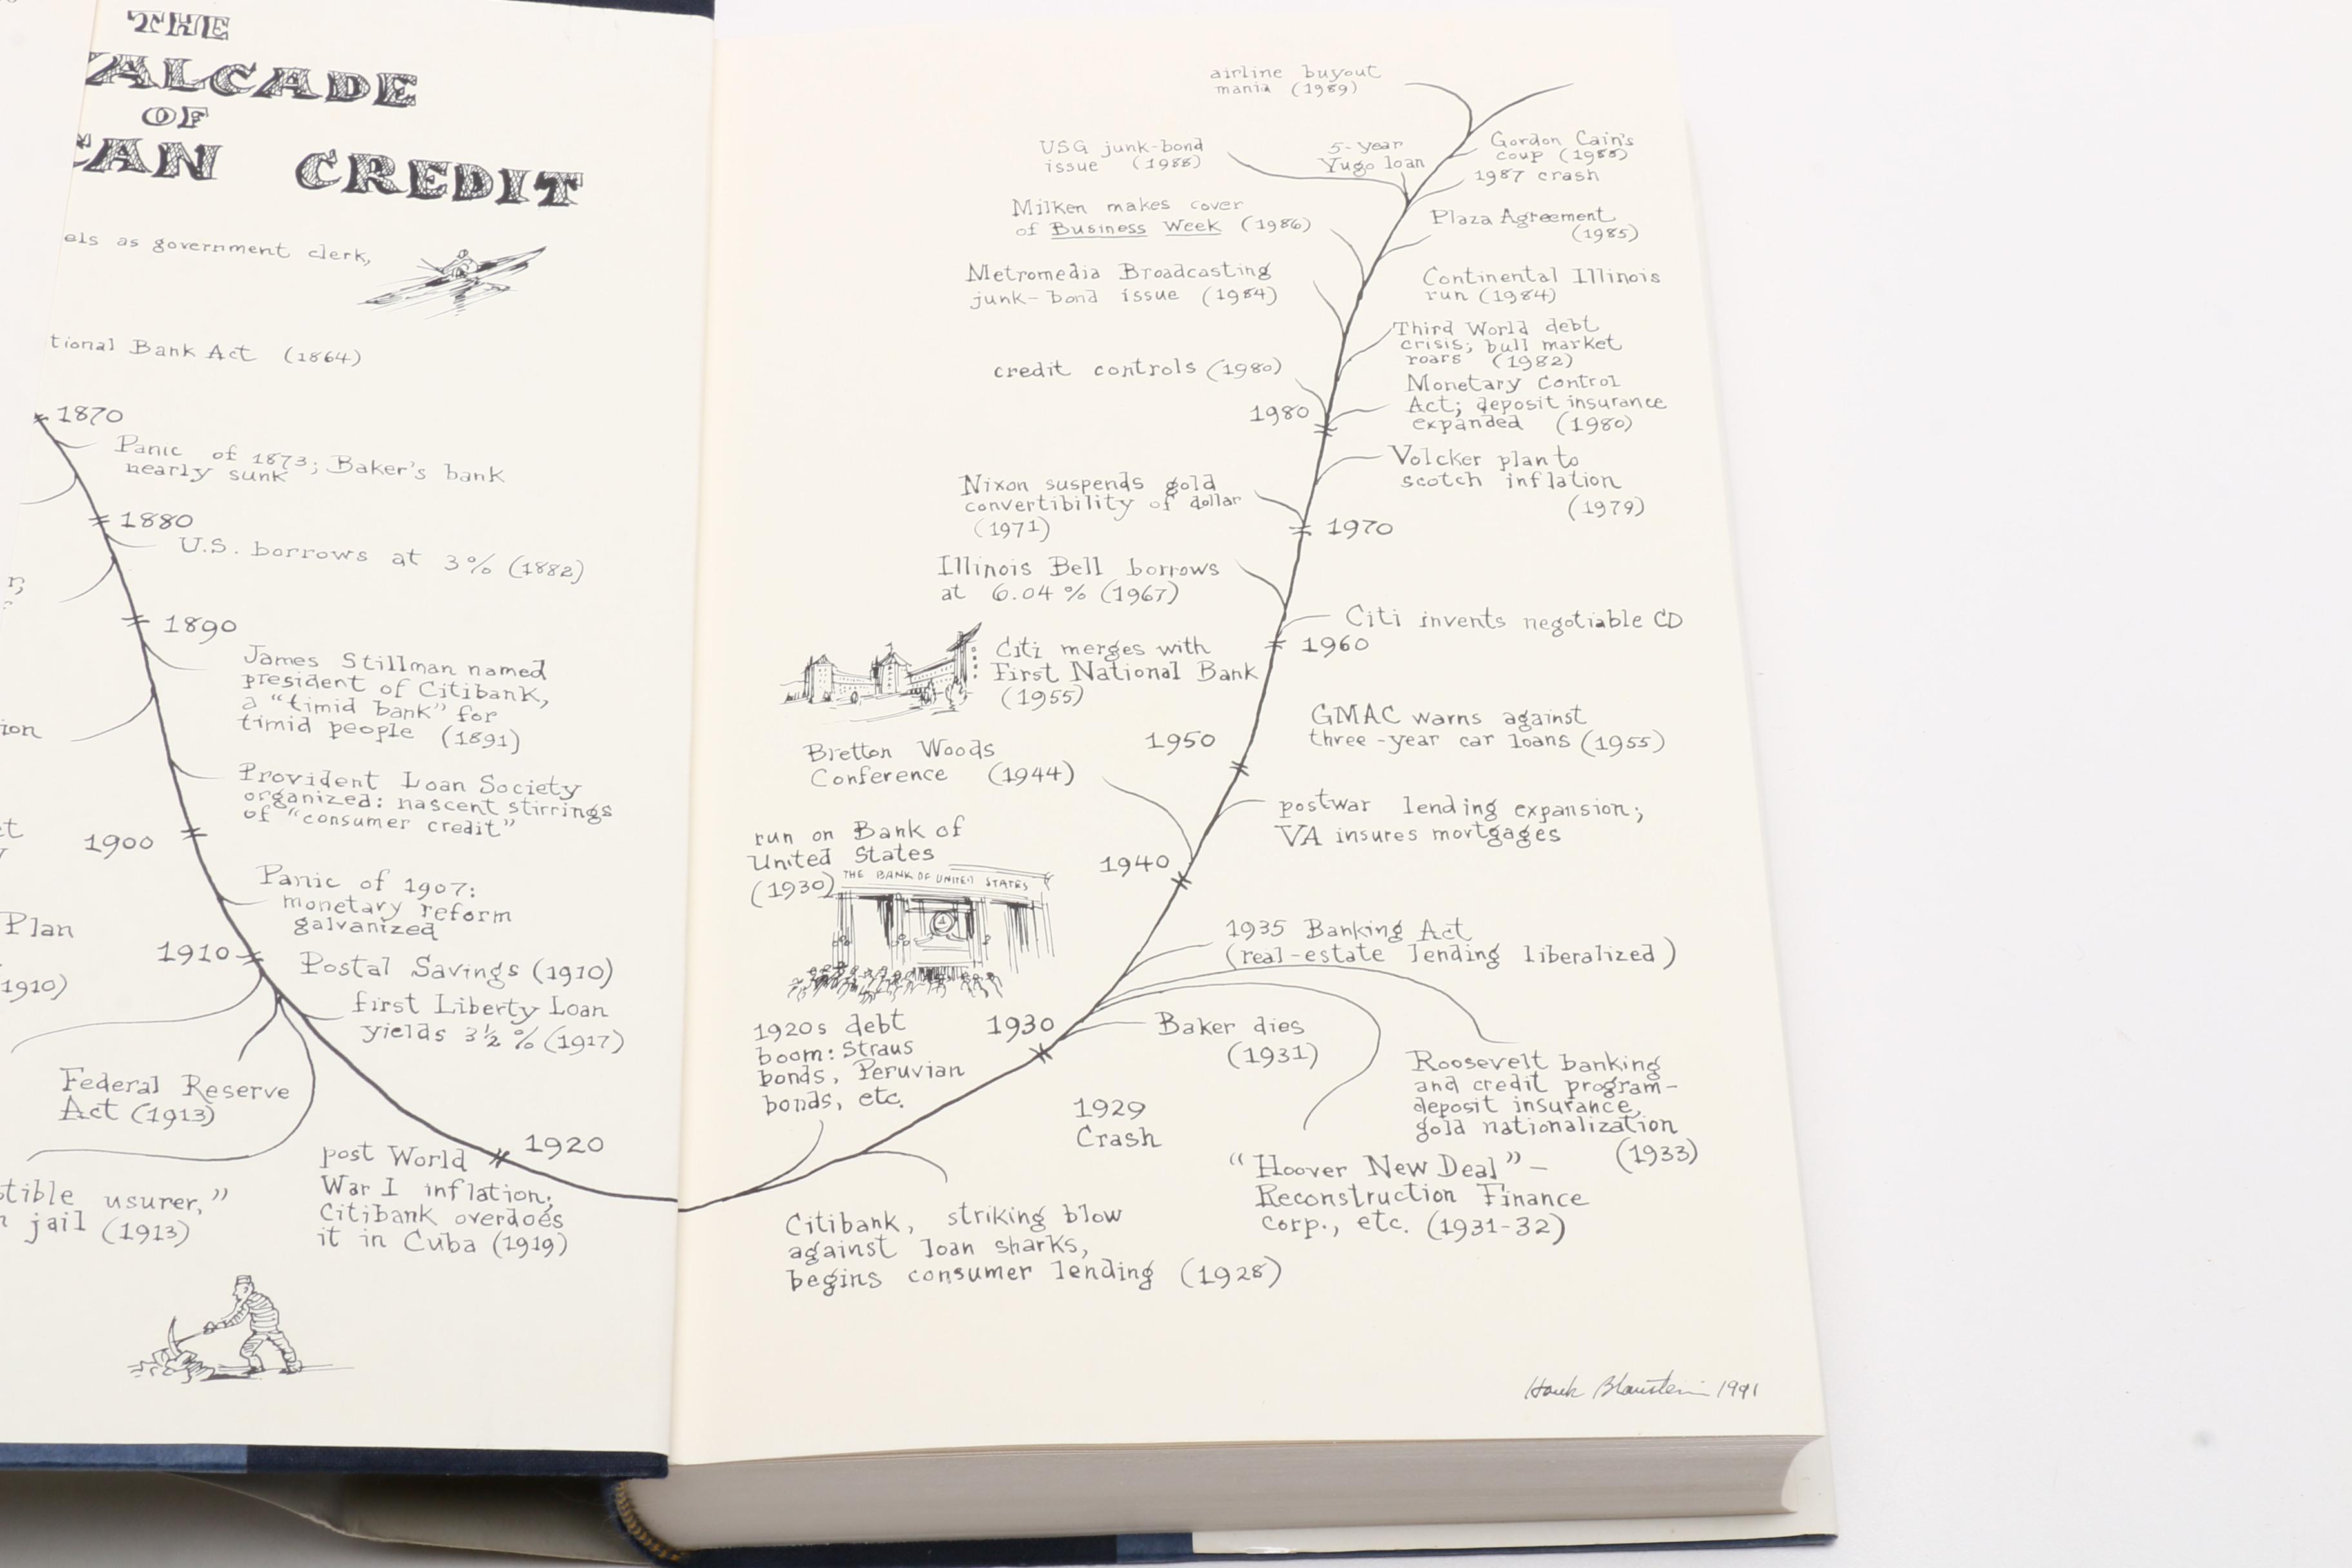 THE
OF
CREDIT
as government clerk,
Bank Act (1864)
1870
Panic of 1873; Baker's bank
nearly sunk
1880
U.S. borrows at 3% (1882)
1890
James Stillman named
president of Citibank,
a "timid bank" for
timid people (1891)
Provident Loan Society
organized: nascent stirrings
of "consumer credit"
1900
Panic of 1907:
monetary reform
galvanized
Plan
1910
Postal Savings (1910)
1910)
first Liberty Loan
yields 3½% (1917)
Federal Reserve
Act (1913)
1920
usurer,"
jail (1913)
post World
War I inflation;
Citibank overdoes
it in Cuba (1919)
airline buyout
mania (1989)
USG junk-bond
issue (1988)
5-year
Yugo loan
Gordon Cain's
coup (1988)
1987 crash
Milken makes cover
of Business Week (1986)
Plaza Agreement
(1985)
Metromedia Broadcasting
junk-bond issue (1984)
Continental Illinois
run (1984)
Third World debt
crisis; bull market
roars (1982)
credit controls (1980)
Monetary Control
Act; deposit insurance
expanded (1980)
1980
Volcker plan to
scotch inflation
(1979)
Nixon suspends gold
convertibility of dollar
(1971)
1970
Illinois Bell borrows
at 6.04% (1967)
Citi invents negotiable CD
1960
Citi merges with
First National Bank
(1955)
GMAC warns against
three-year car loans (1955)
1950
Bretton Woods
Conference (1944)
postwar lending expansion;
VA insures mortgages
run on Bank of
United States
(1930)
THE BANK OF UNITED STATES
1940
1935 Banking Act
(real-estate lending liberalized)
1920s debt
boom: Straus
bonds, Peruvian
bonds, etc.
1930
Baker dies
(1931)
1929
Crash
Roosevelt banking
and credit program-
deposit insurance,
gold nationalization
(1933)
"Hoover New Deal"-
Reconstruction Finance
corp., etc. (1931-32)
Citibank, striking blow
against loan sharks,
begins consumer lending (1928)
Hank Blaustein 1991